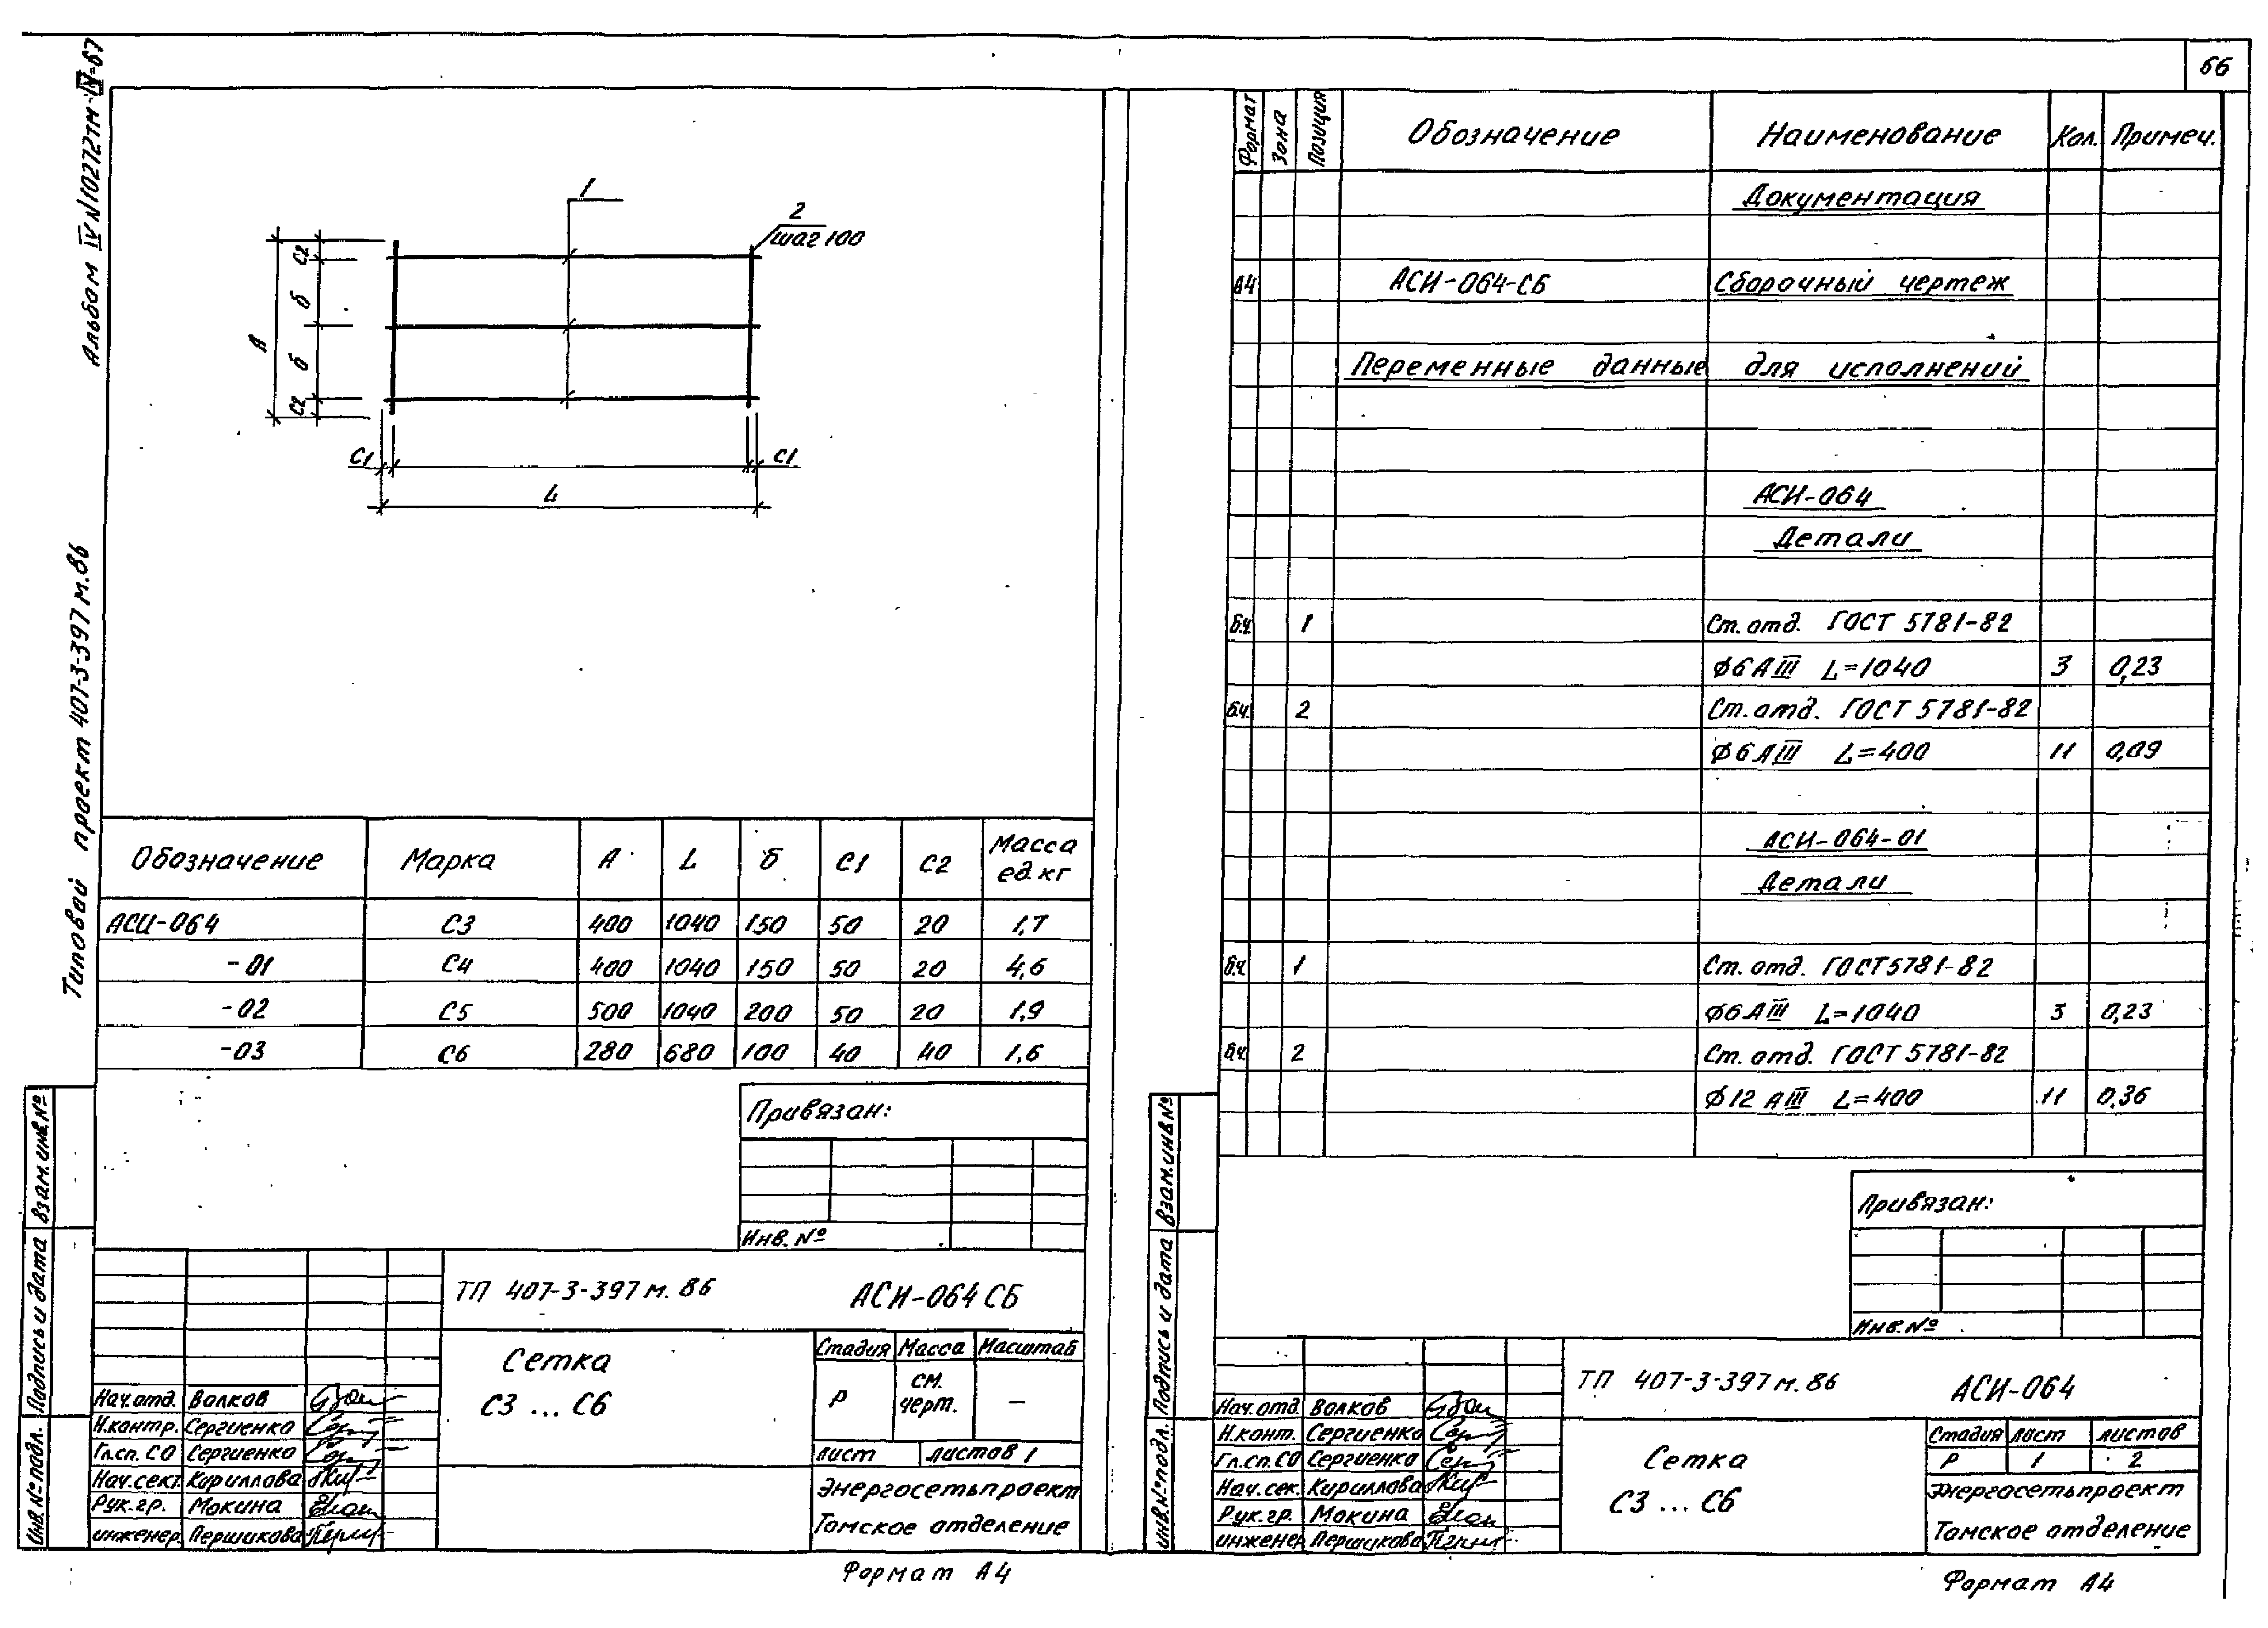 66
Альбом IV N10272тм-IV-67
Типовой проект 407-3-397м.86
1
2
шаг 100
А
С2
б
б
С2
С1
С1
L
Обозначение Марка А L б С1 С2 Масса ед. кг
АСИ-064 С3 400 1040 150 50 20 1,7
-01 С4 400 1040 150 50 20 4,6
-02 С5 500 1040 200 50 20 1,9
-03 С6 280 680 100 40 40 1,6
Привязан:
Инв. №
ТП 407-3-397м. 86 АСИ-064 СБ
Сетка
С3 ... С6
Стадия Масса Масштаб
Р см. черт. —
лист листов 1
Энергосетьпроект
Томское отделение
Нач.отд. Волков
Н.контр. Сергиенко
Гл.сп. СО Сергиенко
Нач.сект. Кириллова
Рук.гр. Мокина
инженер. Першикова
Инв. № подл. Подпись и дата Взам. инв. №
Формат А4
Формат Зона Позиция Обозначение Наименование Кол. Примеч.
Документация
А4 АСИ-064-СБ Сборочный чертеж
Переменные данные для исполнений
АСИ-064
Детали
б.ч. 1 Ст. отд. ГОСТ 5781-82
Ø6 АIII L=1040 3 0,23
б.ч. 2 Ст. отд. ГОСТ 5781-82
Ø6 АIII L=400 11 0,09
АСИ-064-01
Детали
б.ч. 1 Ст. отд. ГОСТ 5781-82
Ø6 АIII L=1040 3 0,23
б.ч. 2 Ст. отд. ГОСТ 5781-82
Ø12 АIII L=400 11 0,36
Привязан:
Инв. №
ТП 407-3-397м. 86 АСИ-064
Сетка
С3 ... С6
Стадия лист листов
Р 1 2
Энергосетьпроект
Томское отделение
Нач.отд. Волков
Н.конт. Сергиенко
Гл.сп. СО Сергиенко
Нач.сек. Кириллова
Рук.гр. Мокина
инженер Першикова
Инв. № подл. Подпись и дата Взам. инв. №
Формат А4